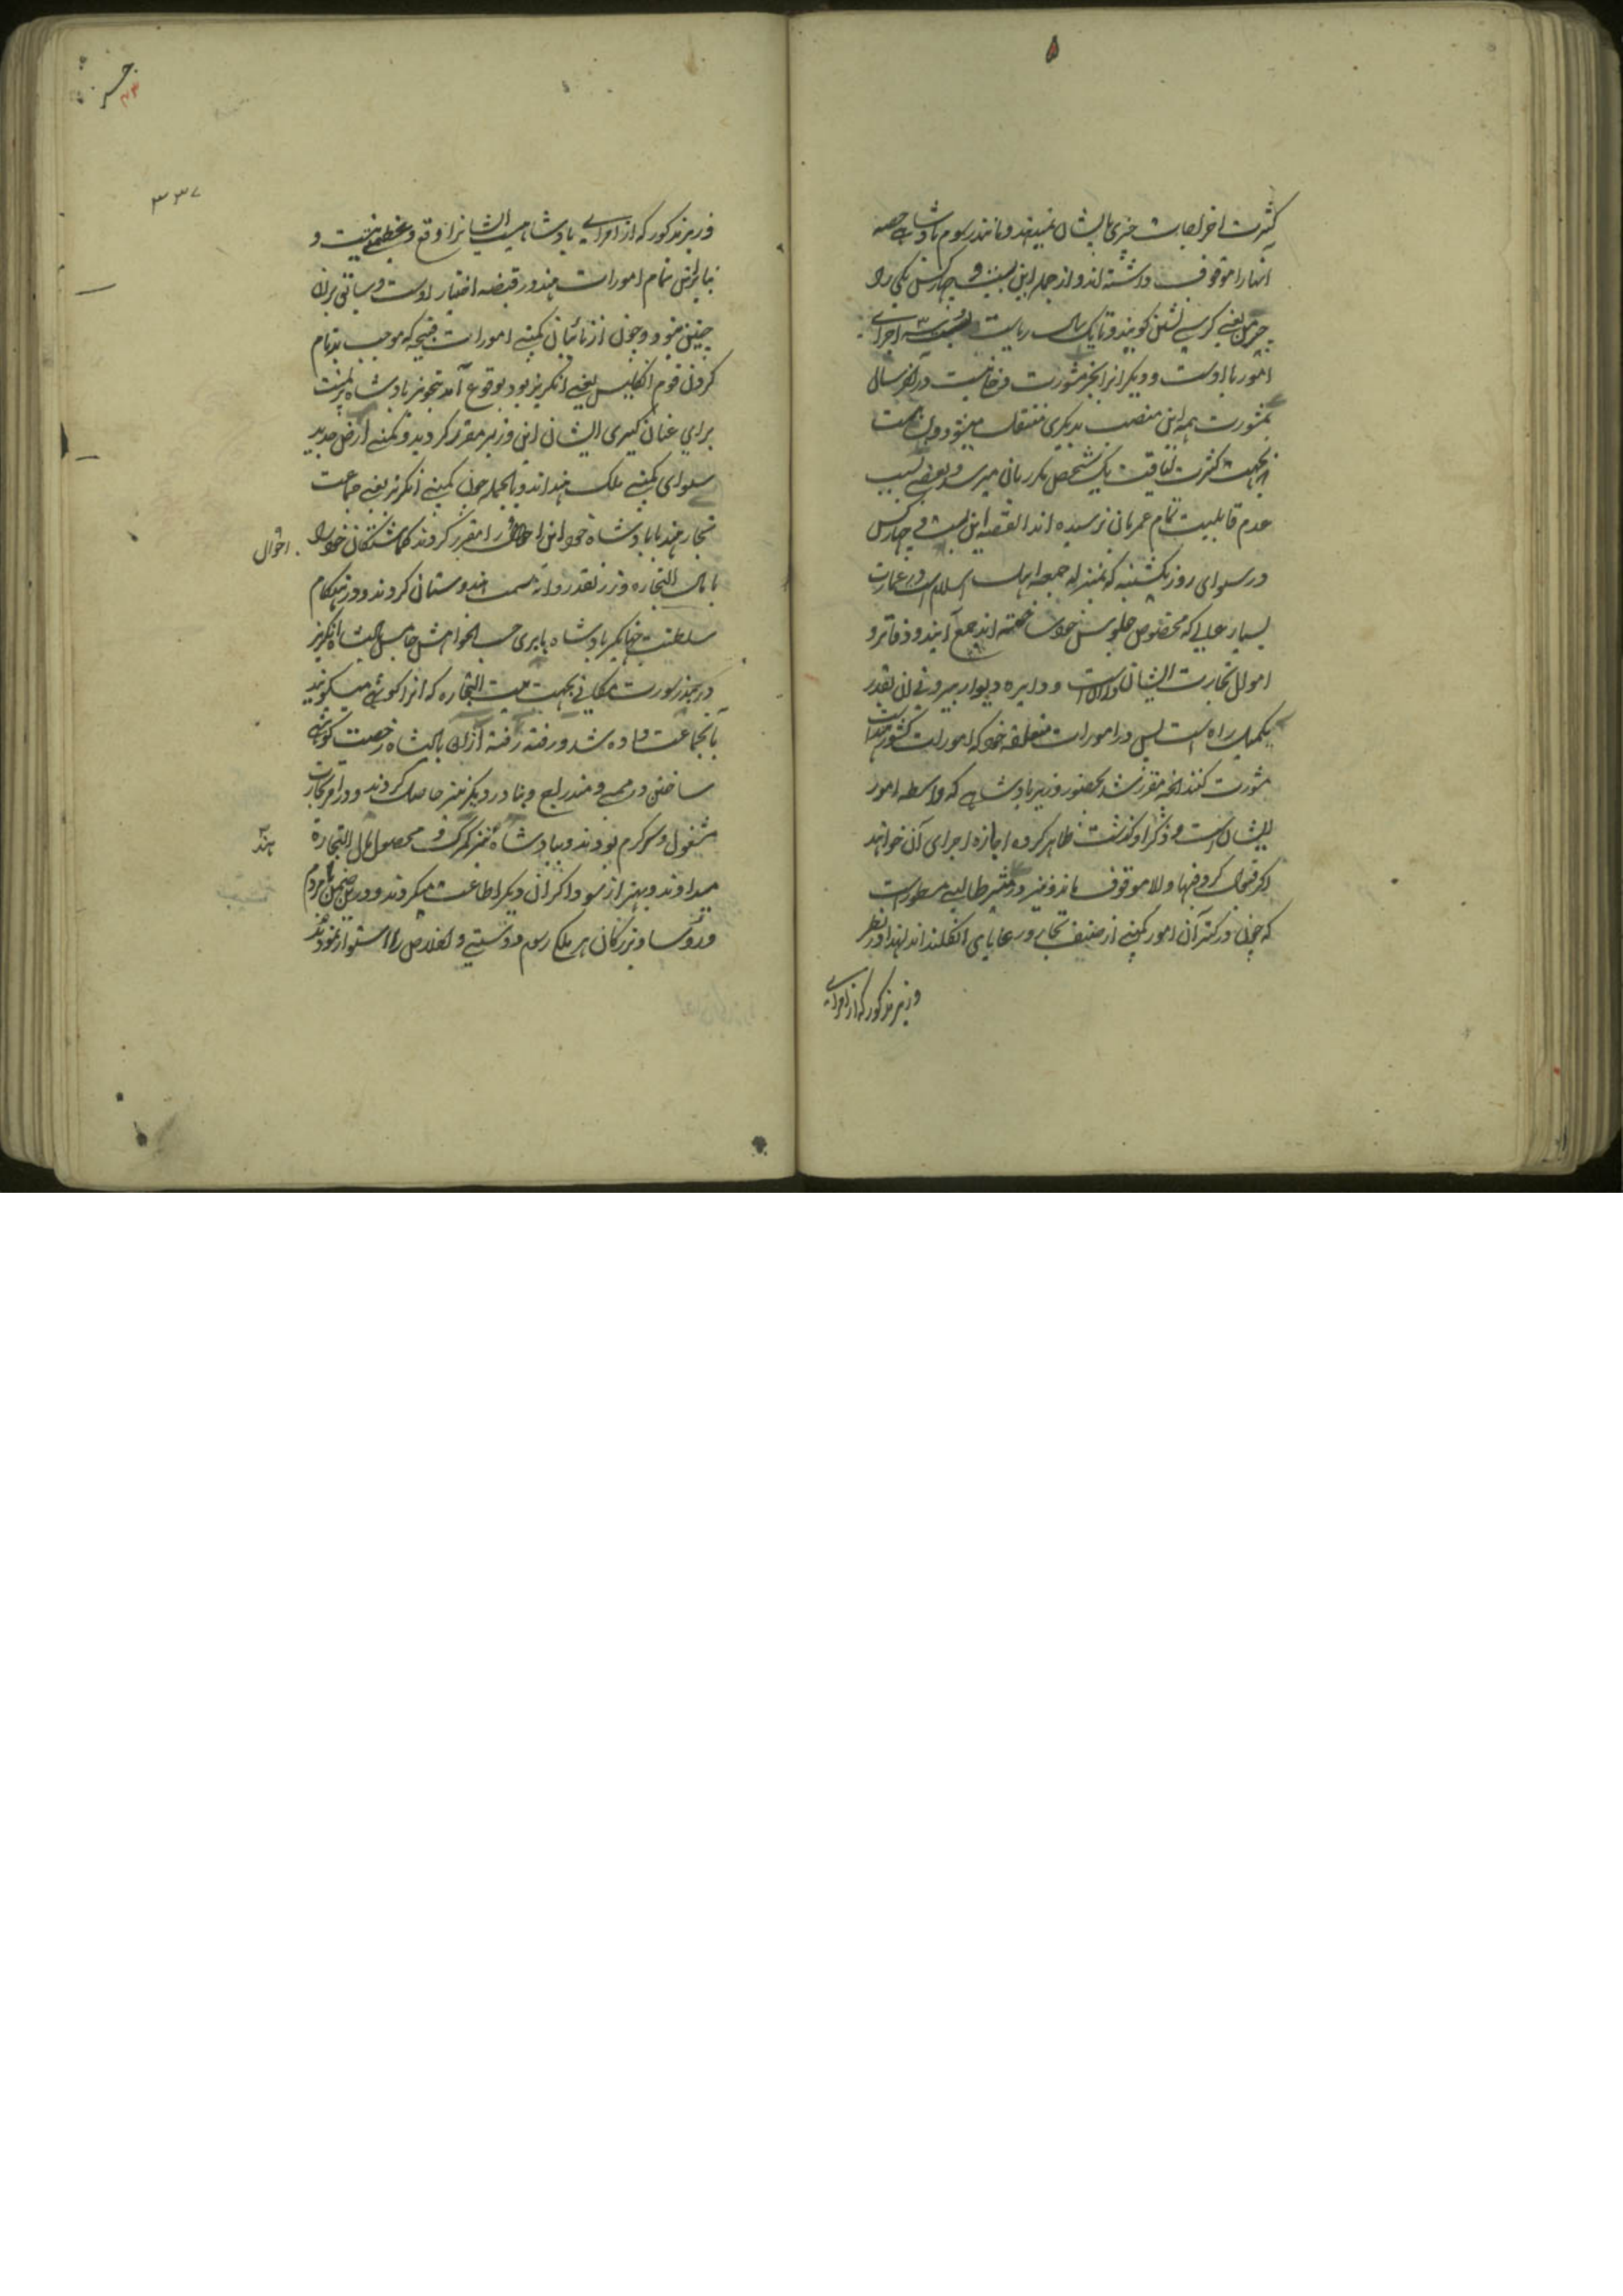 کثرت اخراجات چیزی بایشان نمیدهد و مانند رسوم پادشاهی حصه
انها را موقوف داشته اند و از جمله این بیست و چهار کس یکی را
چرمن یعنی کرسی نشین کویند و تا یک سال ریاست اجرای
امور با اوست و دیکرانرا بجز مشورت دخلی نیست و در اخر سال
بمشورت همه این منصب بدیکری منتقل میشود و
بجهت کثرت لیاقت یک شخص مکرر بانی میرسد و بعضی بسبب
عدم قابلیت تمام عمر بان نرسیده اند القصه این بیست و چهار کس
در سوای روز یکشنبه که بمنزله جمعه اهل اسلام است در عمارت
بسیار عالی که مخصوص جلوس خود ساخته اند جمع آیند و دفاتر و
اموال تجارت ایشان و دایره دیوار بیرونی ان بقدر
یکمیل راه است پس در امورات متعلقه خود که امورات کشور هند است
مشورت کنند انچه مقرر شد بحضور وزیر پادشاهی که واسطه امور
ایشان است و ذکر او گذشت ظاهر کرده اجازه اجرای آن خواهند
اکر قبول کرد فبها و الا موقوف ماند و نیز در
که چون در کتر آن امور کمپنی از صنف تجار و رعایای انکلند اند لهذا در نظر
وزیر مذکور که از امرای
۳۳۷
وزیر مذکور که از امرای پادشاهیست ایشانرا وقع و عظمی نیست و
بنابراین تمام امورات هند در قبضه اختیار اوست و سابق برین
چنین نبود و چون از نائبان کمپنی امورات قبیحه که موجب بدنام
کردن قوم انکلیس یعنی انکریز بود بوقوع آمد بتجویز پادشاه و
برای عنان کیری ایشان این وزیر مقرر کردید و کمپنی ارض جدید
سوای کمپنی ملک هند اند و بالجمله چون کمپنی انکریز یعنی جماعت
تجار هند با پادشاه خود این را مقرر کردند کماشتکان خود را
احوال
با مال التجاره و زر نقد روانه سمت هندوستان کردند و در هنکام
سلطنت جهانکیر پادشاه بابری حسب الخواهش انکریز
در بندر سورت مکانی بجهت بیت التجاره که انرا کوتهی میکویند
بانجماعت داده شد و رفته رفته از ان پادشاه رخصت کوتهی
ساختن در ممبی و مندراج و بنادر دیکر نیز حاصل کردند و در امر تجارت
مشغول و سرکرم بودند و بپادشاه نیز کمرک و محصول مال التجارة
هند
میدادند و بهتر از سوداکران دیکر اطاعت میکردند و در ضمن با مردم
و رؤسا و بزرکان هر ملک رسم دوستی و اخلاص را استوار نمودند